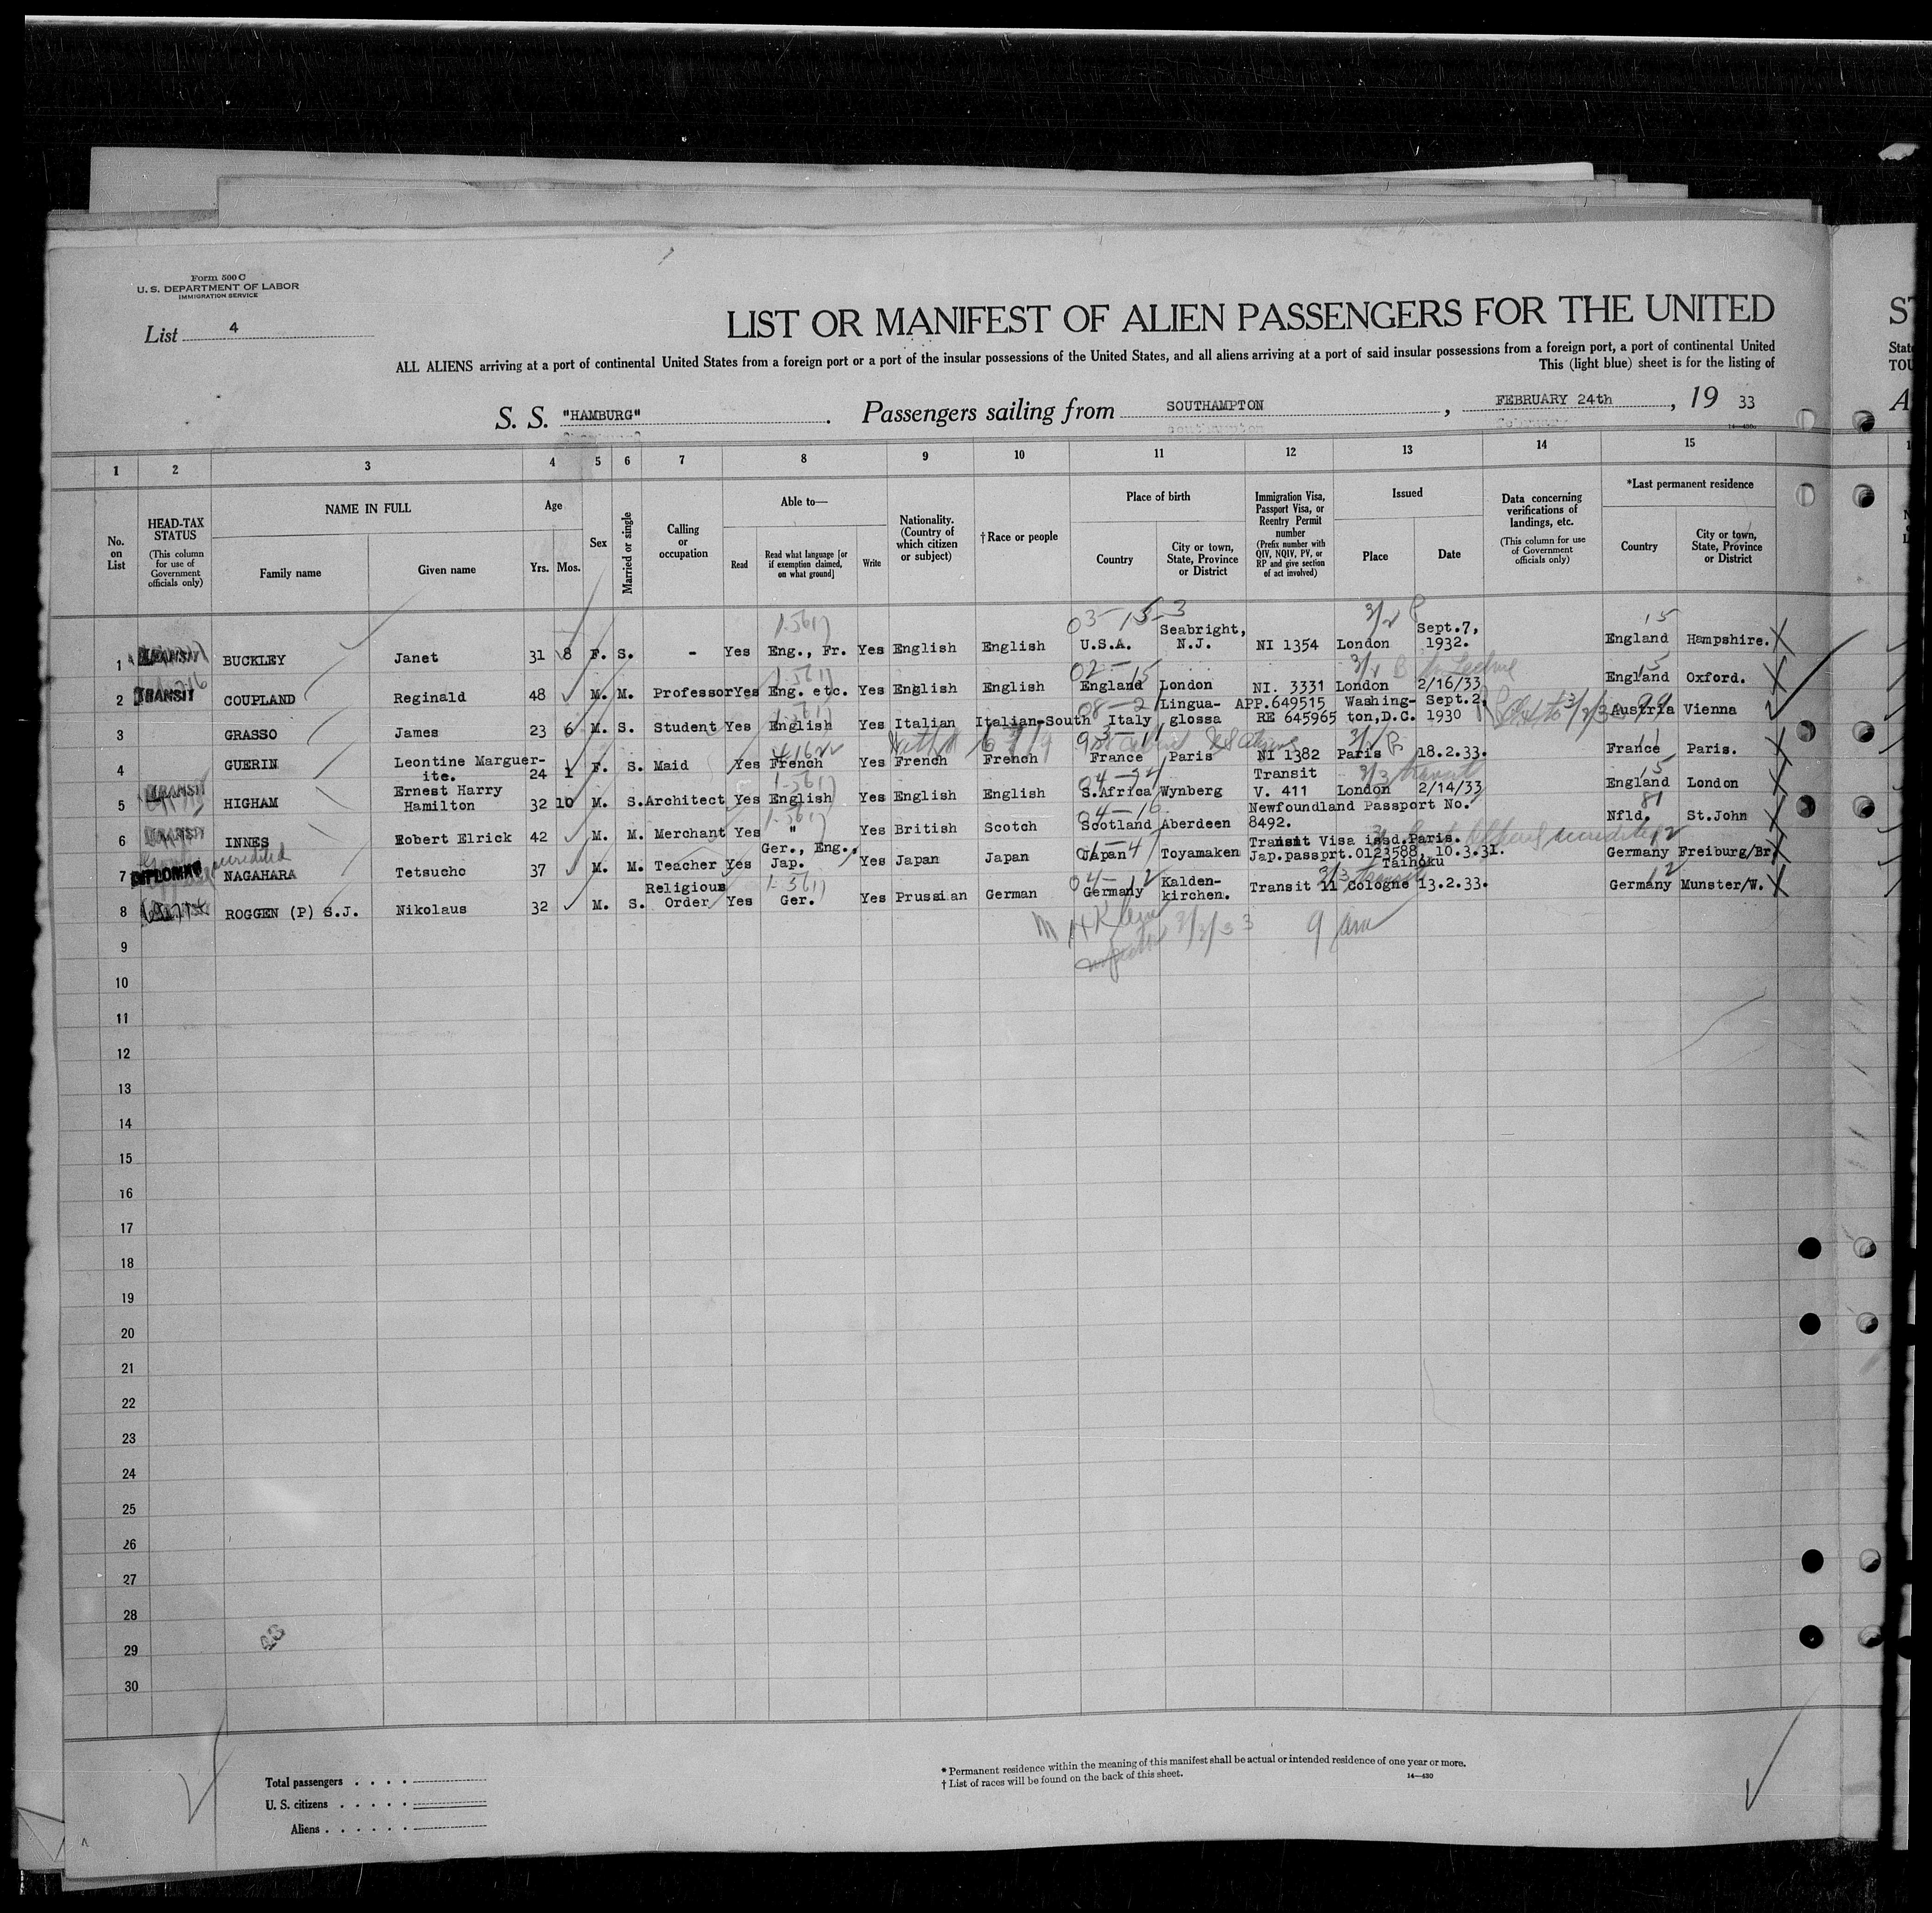 Form 500 C
U. S. DEPARTMENT OF LABOR
IMMIGRATION SERVICE
List 4
LIST OR MANIFEST OF ALIEN PASSENGERS FOR THE UNITED
ALL ALIENS arriving at a port of continental United States from a foreign port or a port of the insular possessions of the United States, and all aliens arriving at a port of said insular possessions from a foreign port, a port of continental United
This (light blue) sheet is for the listing of
S. S. "HAMBURG". Passengers sailing from SOUTHAMPTON, FEBRUARY 24th, 19 33
14—430
1 2 3 4 5 6 7 8 9 10 11 12 13 14 15
No. on List
HEAD-TAX STATUS (This column for use of Government officials only)
NAME IN FULL
Family name
Given name
Age
Yrs. Mos.
Sex
Married or single
Calling or occupation
Able to—
Read
Read what language [or if exemption claimed, on what ground]
Write
Nationality. (Country of which citizen or subject)
†Race or people
Place of birth
Country
City or town, State, Province or District
Immigration Visa, Passport Visa, or Reentry Permit number (Prefix number with QIV, NQIV, PV, or RP and give section of act involved)
Issued
Place
Date
Data concerning verifications of landings, etc. (This column for use of Government officials only)
*Last permanent residence
Country
City or town, State, Province or District
1 TRANSIT BUCKLEY Janet 31 8 F. S. - Yes Eng., Fr. Yes English English U.S.A. Seabright, N.J. NI 1354 London Sept.7, 1932. England Hampshire.
2 TRANSIT COUPLAND Reginald 48 M. M. Professor Yes Eng. etc. Yes English English England London NI. 3331 London 2/16/33 England Oxford.
3 GRASSO James 23 6 M. S. Student Yes English Yes Italian Italian-South Italy Lingua-glossa APP.649515 RE 645965 Washing-ton,D.C. Sept.2, 1930 Austria Vienna
4 GUERIN Leontine Marguer-ite. 24 1 F. S. Maid Yes French Yes French French France Paris NI 1382 Paris 18.2.33. France Paris.
5 TRANSIT HIGHAM Ernest Harry Hamilton 32 10 M. S. Architect Yes English Yes English English S.Africa Wynberg Transit V. 411 London 2/14/33 England London
6 TRANSIT INNES Robert Elrick 42 M. M. Merchant Yes " Yes British Scotch Scotland Aberdeen Newfoundland Passport No. 8492. Nfld. St.John
7 DIPLOMAT accredited NAGAHARA Tetsucho 37 M. M. Teacher Yes Ger., Eng., Jap. Yes Japan Japan Japan Toyamaken Transit Visa issd.Paris. Jap.passprt.0123588, 10.3.31. Taihoku Germany Freiburg/Br.
8 ROGGEN (P) S.J. Nikolaus 32 M. S. Religious Order Yes Ger. Yes Prussian German Germany Kalden-kirchen. Transit 11 Cologne 13.2.33. Germany Munster/W.
3/3/33 9 am
9
10
11
12
13
14
15
16
17
18
19
20
21
22
23
24
25
26
27
28
29
30
Total passengers . . . .
U. S. citizens . . . . .
Aliens . . . . . .
* Permanent residence within the meaning of this manifest shall be actual or intended residence of one year or more.
† List of races will be found on the back of this sheet.
14—430